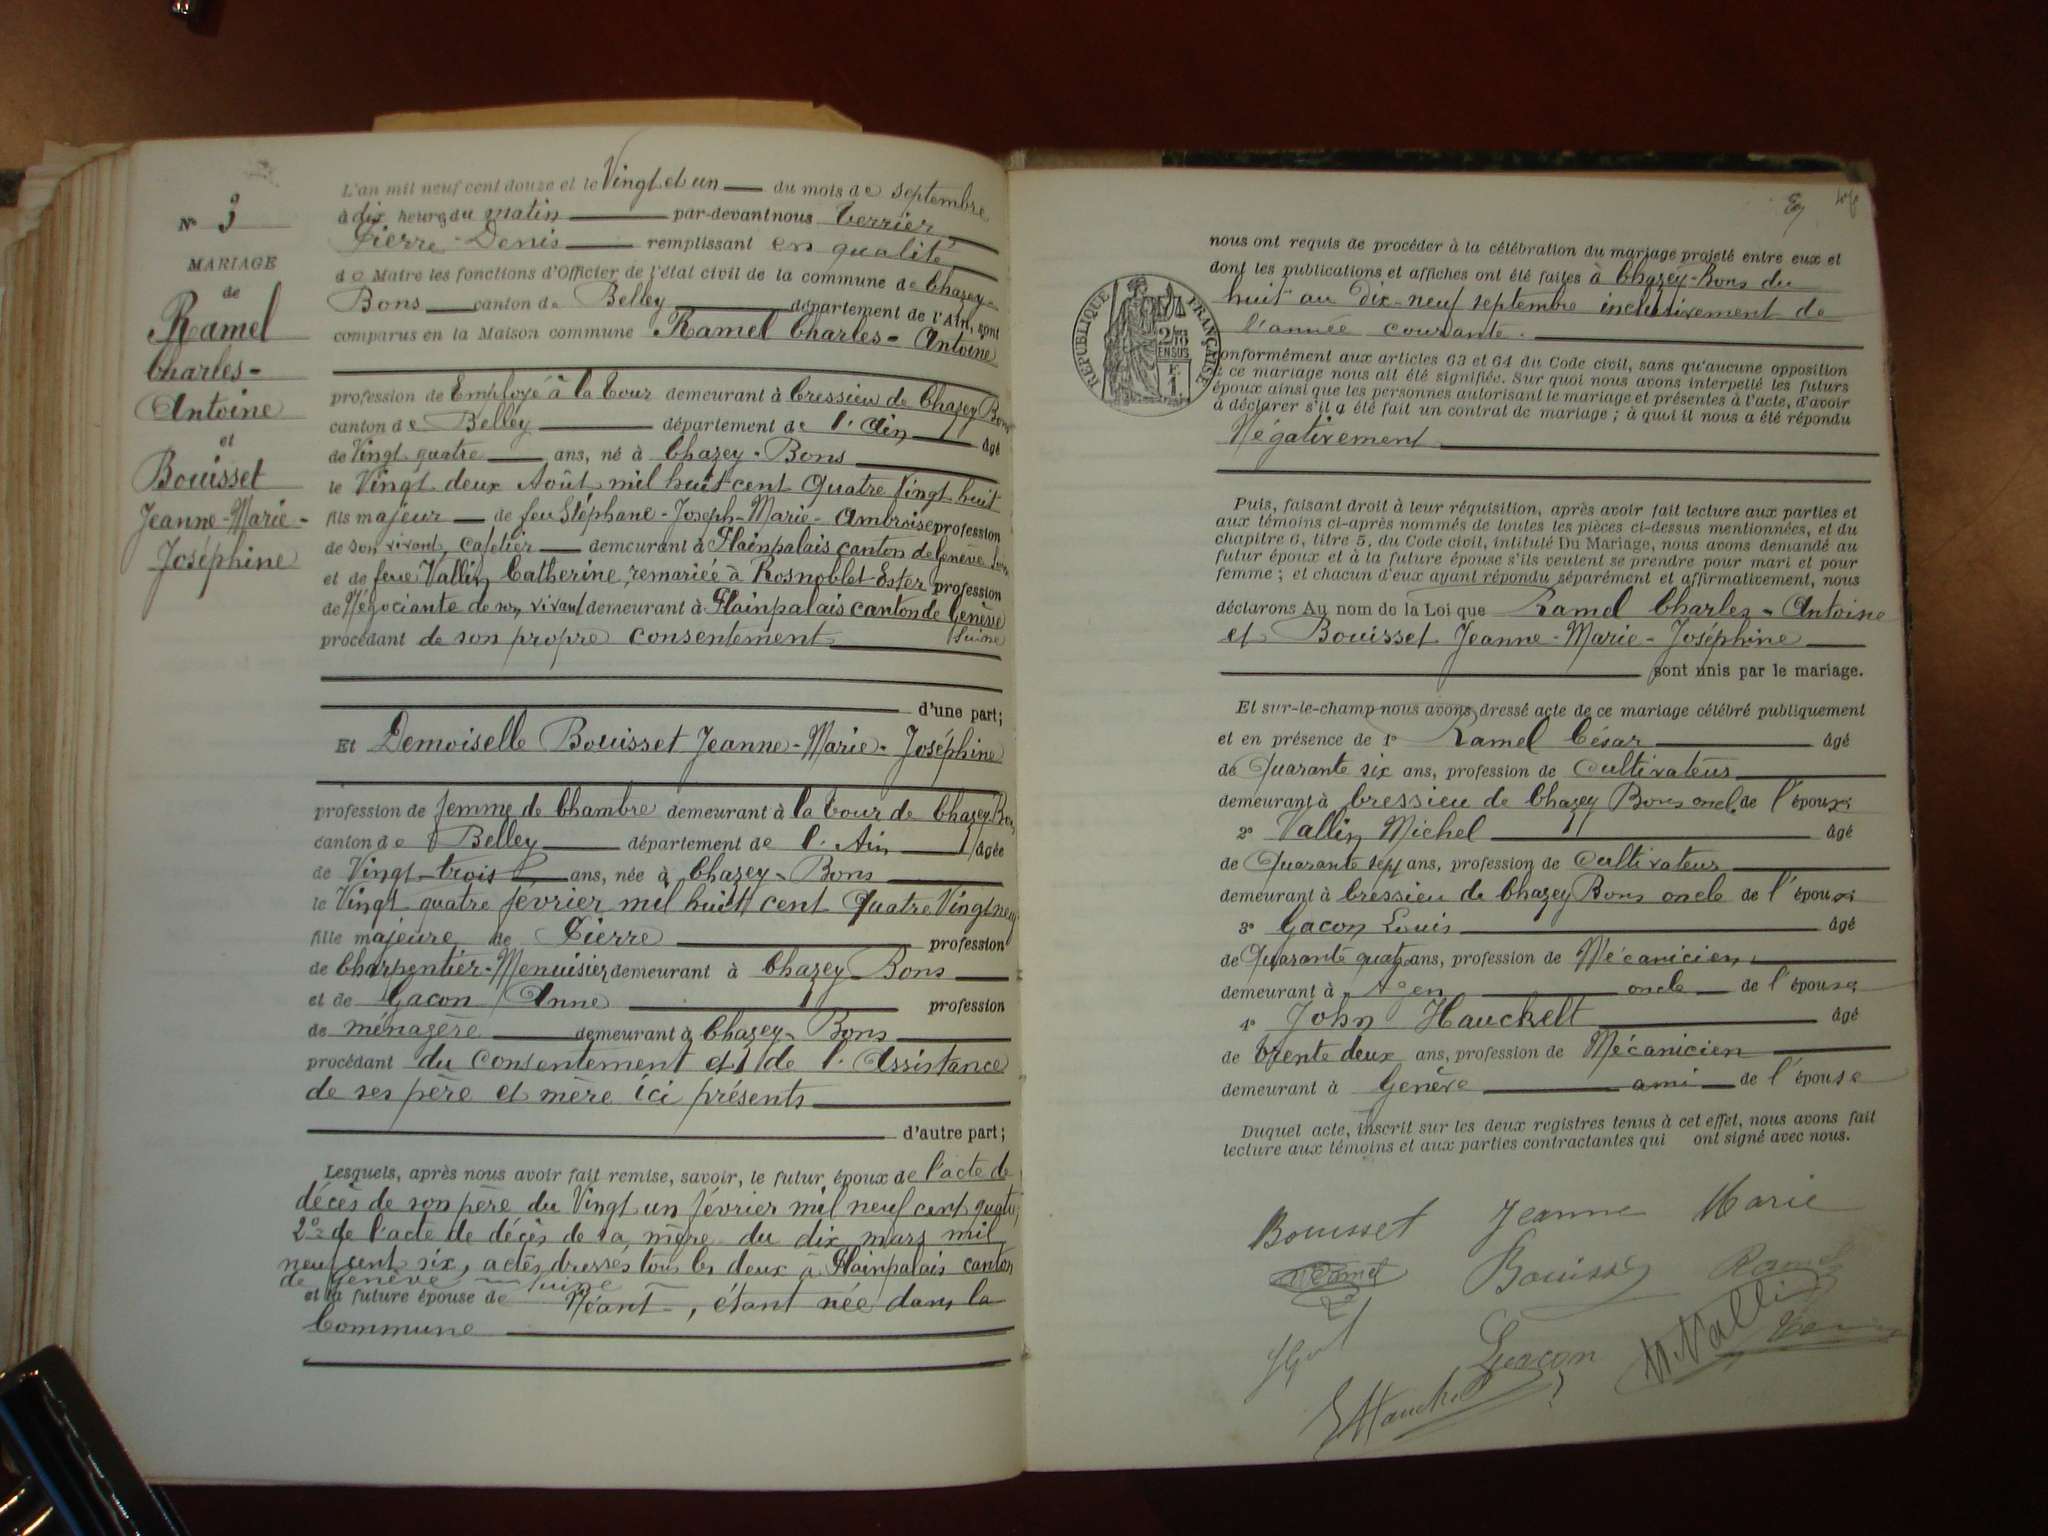 N° 3
MARIAGE
de
Ramel
Charles-
Antoine
et
Bouisset
Jeanne-Marie-
Joséphine
L'an mil neuf cent douze et le Vingt et un du mois de septembre
à dix heures du matin par-devant nous Terrier
Pierre-Denis remplissant en qualité
de Maire les fonctions d'Officier de l'état civil de la commune de Chazey-
Bons canton de Belley département de l'Ain, sont
comparus en la Maison commune Ramel Charles-Antoine
profession de Employé à la Tour demeurant à Cressieu de Chazey Bons
canton de Belley département de l'Ain âgé
de Vingt quatre ans, né à Chazey-Bons
le Vingt deux Août mil huit cent Quatre Vingt huit
fils majeur de feu Stéphane-Joseph-Marie-Ambroise profession
de son vivant, cafetier demeurant à Plainpalais canton de Genève
et de feue Vallin Catherine, remariée à Rosnoblet Ester profession
de Négociante de son vivant demeurant à Plainpalais canton de Genève
(Suisse)
procédant de son propre consentement
d'une part;
Et Demoiselle Bouisset Jeanne-Marie-Joséphine
profession de femme de Chambre demeurant à la Tour de Chazey Bons
canton de Belley département de l'Ain âgée
de Vingt-trois ans, née à Chazey-Bons
le Vingt quatre février mil huit cent Quatre Vingt neuf
fille majeure de Pierre profession
de Charpentier-Menuisier demeurant à Chazey-Bons
et de Gacon Anne profession
de ménagère demeurant à Chazey-Bons
procédant du consentement et de l'Assistance
de ses père et mère ici présents
d'autre part;
Lesquels, après nous avoir fait remise, savoir, le futur époux de l'acte de
décès de son père du Vingt un février mil neuf cent quatre,
2° de l'acte de décès de sa mère du dix mars mil
neuf cent six, actes dressés tous les deux à Plainpalais canton
de Genève Suisse
et la future épouse de Néant, étant née dans la
Commune
nous ont requis de procéder à la célébration du mariage projeté entre eux et
dont les publications et affiches ont été faites à Chazey-Bons du
huit au Dix-neuf septembre inclusivement de
l'année courante.
RÉPUBLIQUE FRANÇAISE
conformément aux articles 63 et 64 du Code civil, sans qu'aucune opposition
à ce mariage nous ait été signifiée. Sur quoi nous avons interpellé les futurs
époux ainsi que les personnes autorisant le mariage et présentes à l'acte, d'avoir
à déclarer s'il a été fait un contrat de mariage; à quoi il nous a été répondu
Négativement
Puis, faisant droit à leur réquisition, après avoir fait lecture aux parties et
aux témoins ci-après nommés de toutes les pièces ci-dessus mentionnées, et du
chapitre 6, titre 5, du Code civil, intitulé Du Mariage, nous avons demandé au
futur époux et à la future épouse s'ils veulent se prendre pour mari et pour
femme; et chacun d'eux ayant répondu séparément et affirmativement, nous
déclarons Au nom de la Loi que Ramel Charles-Antoine
et Bouisset Jeanne-Marie-Joséphine
sont unis par le mariage.
Et sur-le-champ nous avons dressé acte de ce mariage célébré publiquement
et en présence de 1° Ramel César âgé
de Quarante six ans, profession de Cultivateur
demeurant à Cressieu de Chazey Bons oncle de l'époux
2° Vallin Michel âgé
de Quarante sept ans, profession de Cultivateur
demeurant à Cressieu de Chazey Bons oncle de l'époux
3° Gacon Louis âgé
de Quarante quatre ans, profession de Mécanicien
demeurant à oncle de l'épouse
4° John Hauckelt âgé
de Trente deux ans, profession de Mécanicien
demeurant à Genève ami de l'épouse
Duquel acte, inscrit sur les deux registres tenus à cet effet, nous avons fait
lecture aux témoins et aux parties contractantes qui ont signé avec nous.
Bouisset Jeanne Marie
Ramel Bouisset Ramel
Gacon M. Vallin